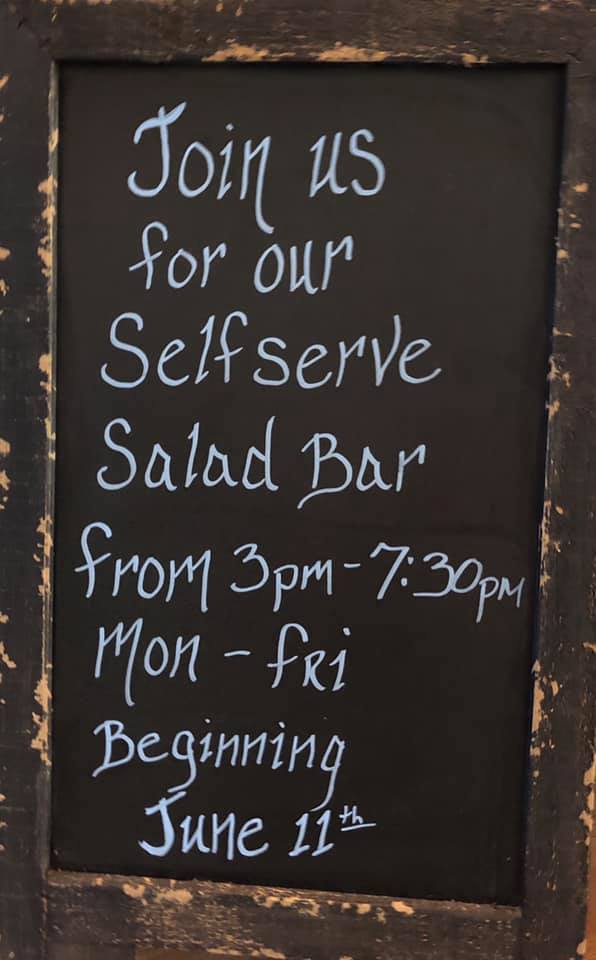 Join us
for our
Selfserve
Salad Bar
from 3pm-7:30pm
Mon - fri
Beginning
June 11th